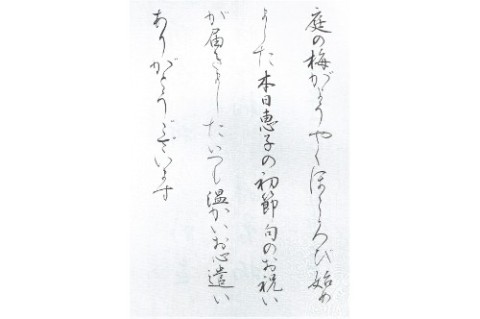 庭の梅がようやくほころび始め
ました本日恵子の初節句のお祝い
が届きましたいつも温かいお心遣い
ありがとうございます